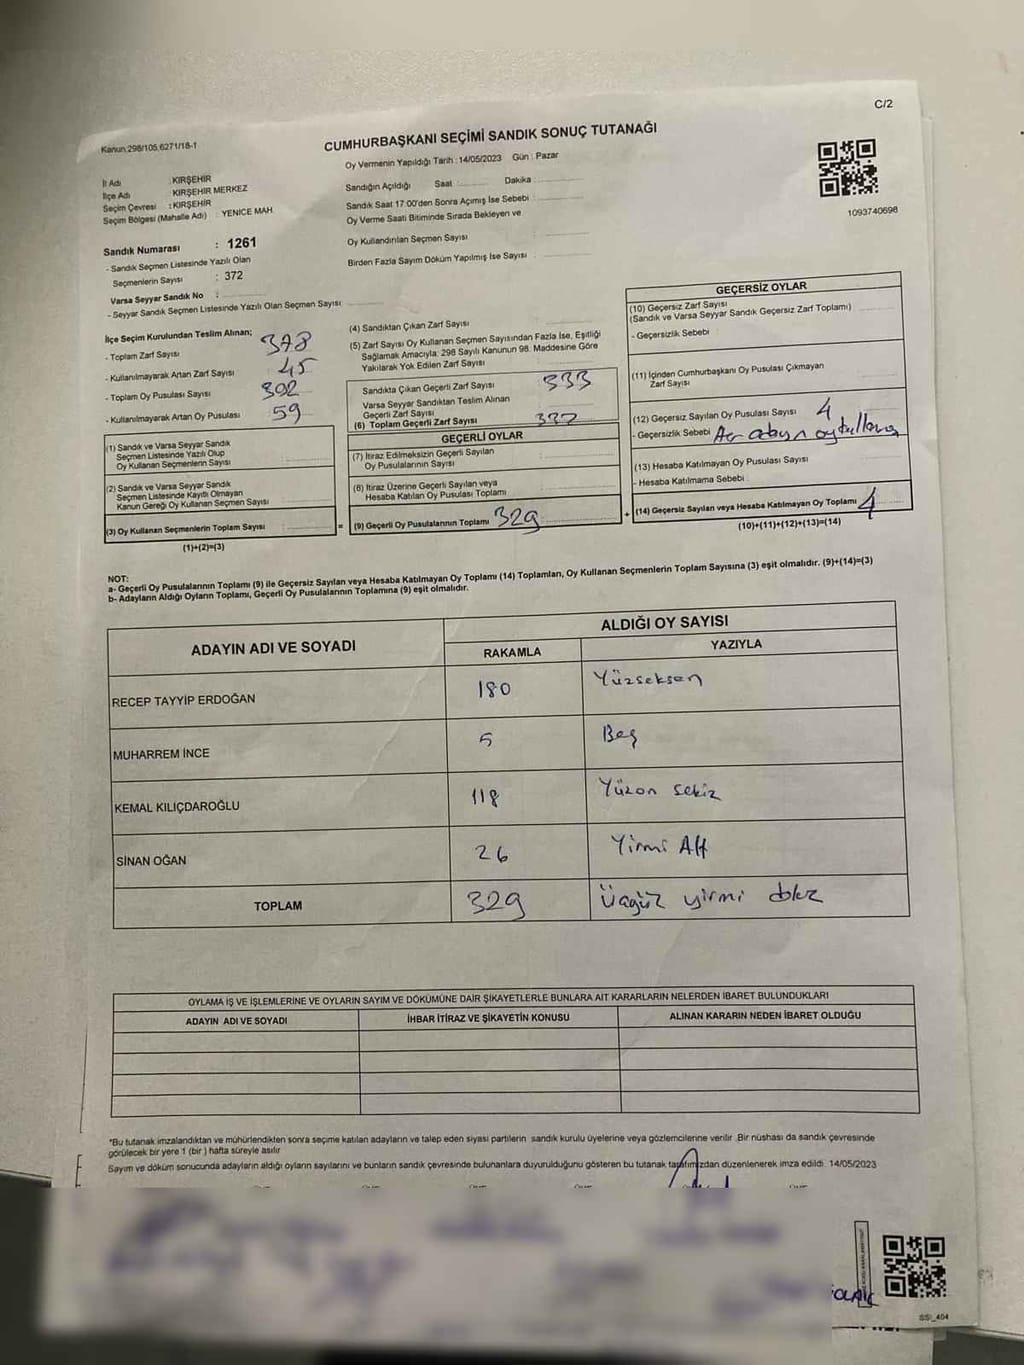 C/2
Kanun:298/105,6271/18-1
CUMHURBAŞKANI SEÇİMİ SANDIK SONUÇ TUTANAĞI
Oy Vermenin Yapıldığı Tarih : 14/05/2023 Gün : Pazar
İl Adı : KIRŞEHİR
İlçe Adı : KIRŞEHİR MERKEZ
Seçim Çevresi : KIRŞEHİR
Seçim Bölgesi (Mahalle Adı) : YENİCE MAH.
Sandığın Açıldığı Saat : Dakika :
Sandık Saat 17:00'den Sonra Açımış İse Sebebi :
Oy Verme Saati Bitiminde Sırada Bekleyen ve
Oy Kullandırılan Seçmen Sayısı
Birden Fazla Sayım Döküm Yapılmış İse Sayısı :
1093740698
Sandık Numarası : 1261
- Sandık Seçmen Listesinde Yazılı Olan
Seçmenlerin Sayısı : 372
Varsa Seyyar Sandık No :
- Seyyar Sandık Seçmen Listesinde Yazılı Olan Seçmen Sayısı
İlçe Seçim Kurulundan Teslim Alınan;
- Toplam Zarf Sayısı 378
- Kullanılmayarak Artan Zarf Sayısı 45
- Toplam Oy Pusulası Sayısı
- Kullanılmayarak Artan Oy Pusulası 59
(1) Sandık ve Varsa Seyyar Sandık
Seçmen Listesinde Yazılı Olup
Oy Kullanan Seçmenlerin Sayısı
(2) Sandık ve Varsa Seyyar Sandık
Seçmen Listesinde Kayıtlı Olmayan
Kanun Gereği Oy Kullanan Seçmen Sayısı :
(3) Oy Kullanan Seçmenlerin Toplam Sayısı :
(1)+(2)=(3)
=
(4) Sandıktan Çıkan Zarf Sayısı
(5) Zarf Sayısı Oy Kullanan Seçmen Sayısından Fazla İse, Eşitliği
Sağlamak Amacıyla; 298 Sayılı Kanunun 98. Maddesine Göre
Yakılarak Yok Edilen Zarf Sayısı
Sandıkta Çıkan Geçerli Zarf Sayısı 333
Varsa Seyyar Sandıktan Teslim Alınan
Geçerli Zarf Sayısı
(6) Toplam Geçerli Zarf Sayısı
GEÇERLİ OYLAR
(7) İtiraz Edilmeksizin Geçerli Sayılan
Oy Pusulalarının Sayısı
(8) İtiraz Üzerine Geçerli Sayılan veya
Hesaba Katılan Oy Pusulası Toplamı
(9) Geçerli Oy Pusulalarının Toplamı 329
+
GEÇERSİZ OYLAR
(10) Geçersiz Zarf Sayısı
(Sandık ve Varsa Seyyar Sandık Geçersiz Zarf Toplamı)
- Geçersizlik Sebebi :
(11) İçinden Cumhurbaşkanı Oy Pusulası Çıkmayan
Zarf Sayısı
(12) Geçersiz Sayılan Oy Pusulası Sayısı 4
- Geçersizlik Sebebi :
(13) Hesaba Katılmayan Oy Pusulası Sayısı
- Hesaba Katılmama Sebebi :
(14) Geçersiz Sayılan veya Hesaba Katılmayan Oy Toplamı : 4
(10)+(11)+(12)+(13)=(14)
NOT:
a- Geçerli Oy Pusulalarının Toplamı (9) ile Geçersiz Sayılan veya Hesaba Katılmayan Oy Toplamı (14) Toplamları, Oy Kullanan Seçmenlerin Toplam Sayısına (3) eşit olmalıdır. (9)+(14)=(3)
b- Adayların Aldığı Oyların Toplamı, Geçerli Oy Pusulalarının Toplamına (9) eşit olmalıdır.
ADAYIN ADI VE SOYADI
ALDIĞI OY SAYISI
RAKAMLA YAZIYLA
RECEP TAYYİP ERDOĞAN 180 Yüzseksen
MUHARREM İNCE 5 Beş
KEMAL KILIÇDAROĞLU 118 Yüzon sekiz
SİNAN OĞAN 26 Yirmi Altı
TOPLAM 329 Üçyüz yirmi dokuz
OYLAMA İŞ VE İŞLEMLERİNE VE OYLARIN SAYIM VE DÖKÜMÜNE DAİR ŞİKAYETLERLE BUNLARA AİT KARARLARIN NELERDEN İBARET BULUNDUKLARI
ADAYIN ADI VE SOYADI İHBAR İTİRAZ VE ŞİKAYETİN KONUSU ALINAN KARARIN NEDEN İBARET OLDUĞU
*Bu tutanak imzalandıktan ve mühürlendikten sonra seçime katılan adayların ve talep eden siyasi partilerin sandık kurulu üyelerine veya gözlemcilerine verilir. Bir nüshası da sandık çevresinde
görülecek bir yere 1 (bir ) hafta süreyle asılır
Sayım ve döküm sonucunda adayların aldığı oyların sayılarını ve bunların sandık çevresinde bulunanlara duyurulduğunu gösteren bu tutanak tarafımızdan düzenlenerek imza edildi. 14/05/2023
SSİ_404